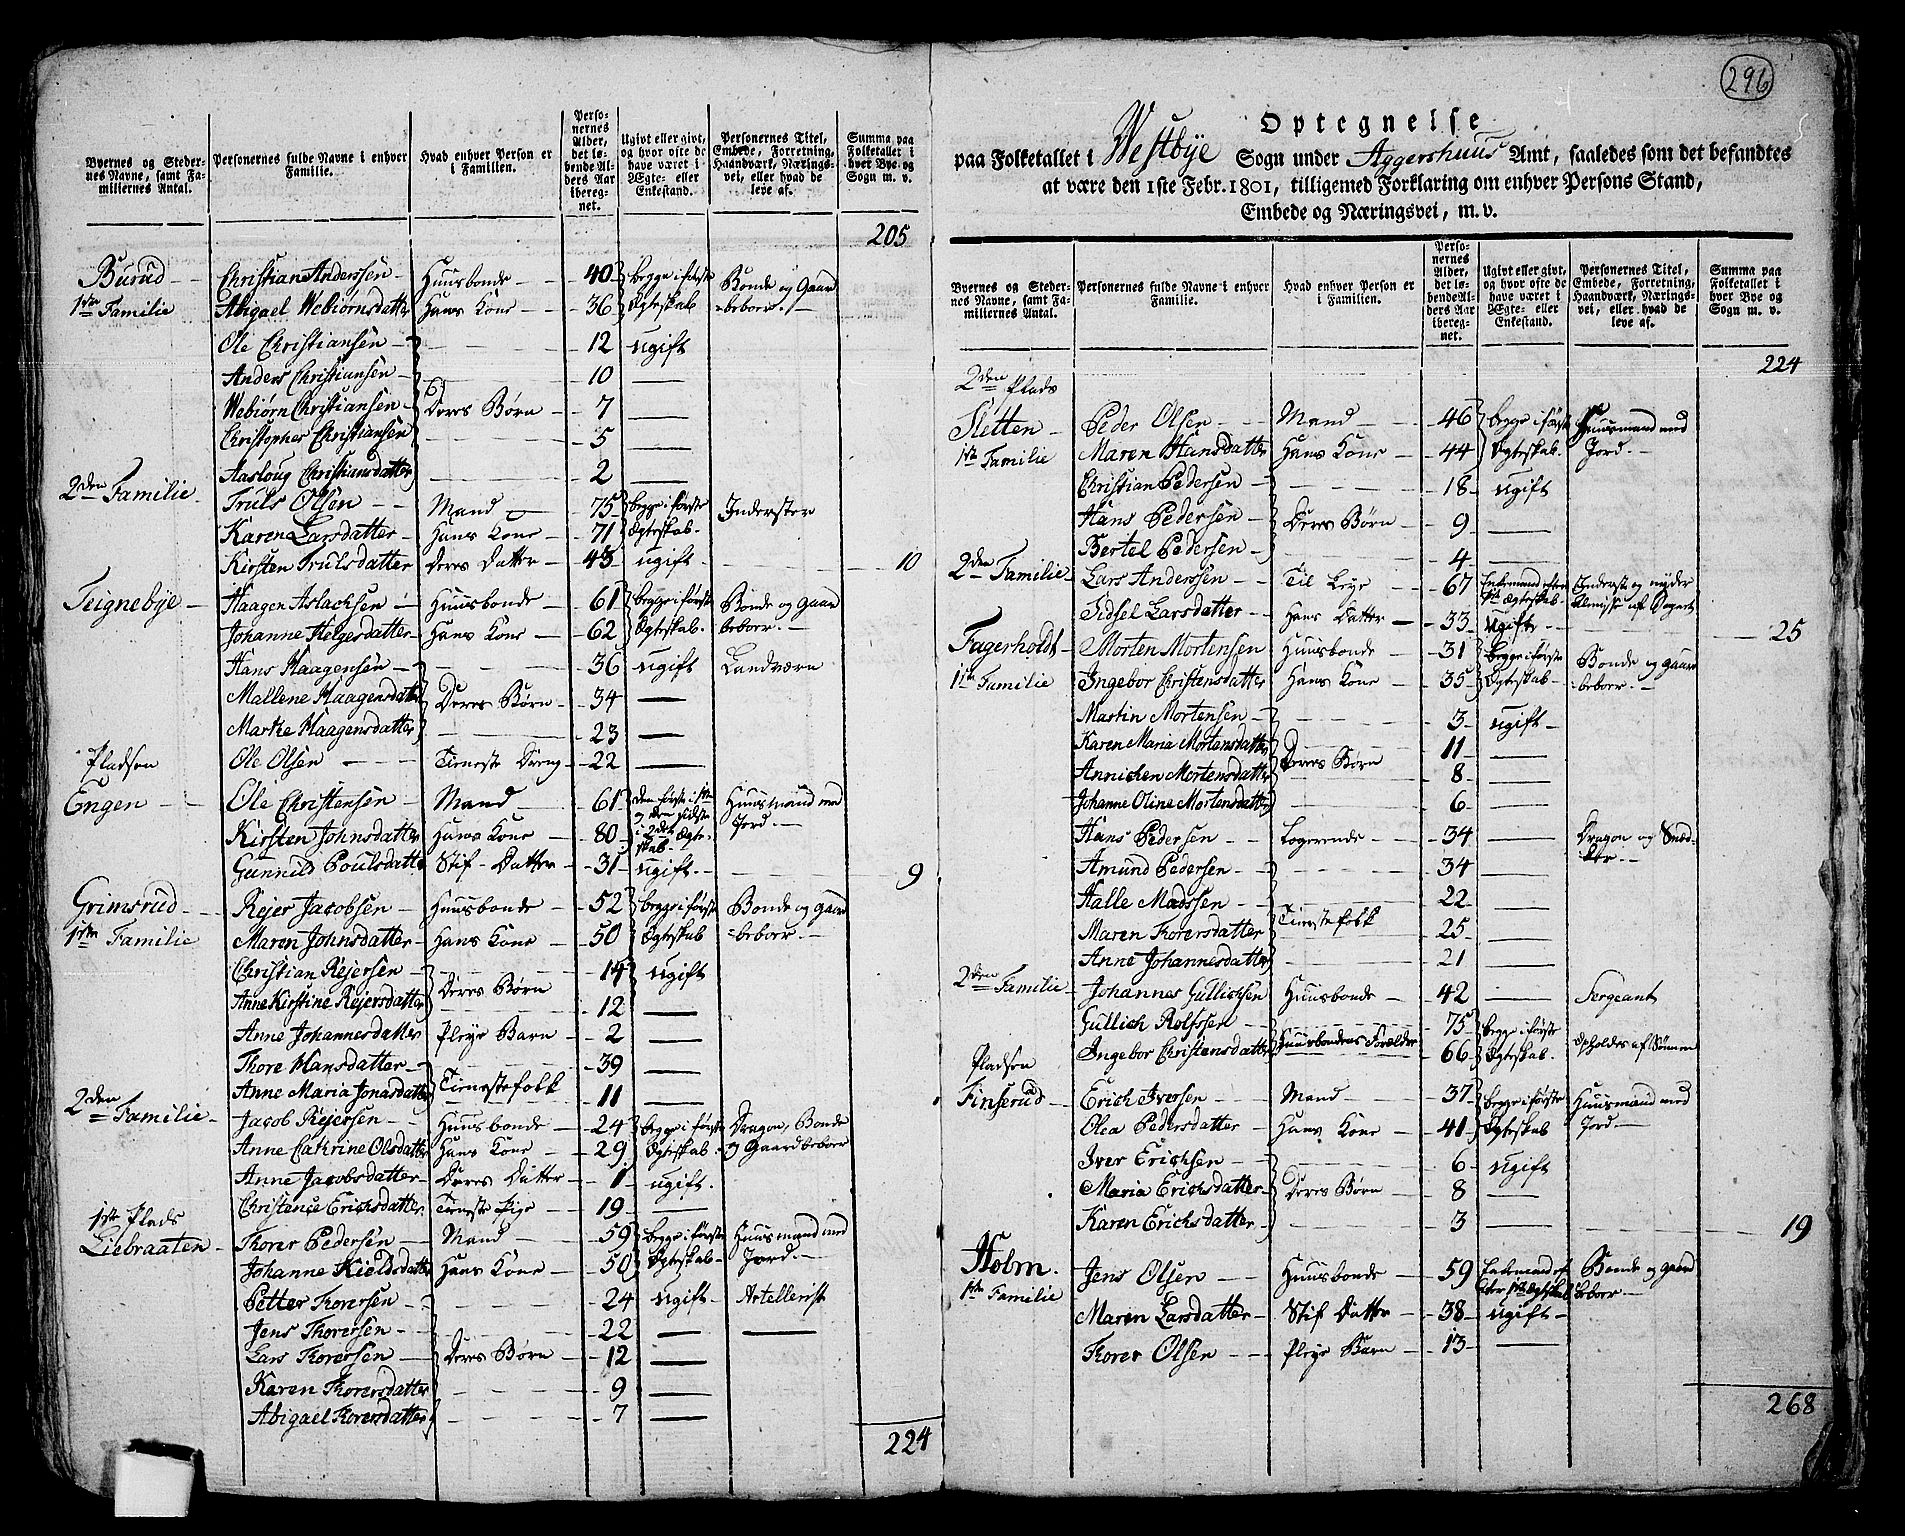 Byernes og Stedernes Navne, samt Familiernes Antal. | Personernes fulde Navne i enhver Familie. | Hvad enhver Person er i Familien. | Personernes Alder, det løbende Alders Aar iberegnet. | Ugivt eller givt, og hvor ofte de have været i Ægte- eller Enkestand. | Personernes Titel, Embede, Forretning, Haandværk, Næringsvei, eller hvad de leve af. | Summa paa Folketallet i hver Bye og Sogn m. v.
205
Burud | Christian Anderssen | Huusbonde | 40 | begge i første | Bonde og Gaard
1ste Familie | Abigael Webiørnsdatter | Hans Kone | 36 | Ægteskab | beboer.
Ole Christiansen | 12 | ugift
Anders Christiansen | 10 | —
Webiørn Christiansen | Deres Børn | 7 | —
Christopher Christiansen | 5 | —
Aasloug Christiansdatter | 2 | —
2den Familie | Truls Olsen | Mand | 75 | begge i første | Inderster
Karen Larsdatter | Hans Kone | 71 | Ægteskab.
Kirsten Trulsdatter | Deres Datter | 43 | ugift | 10
Teignebye | Haagen Aslachsen | Huusbonde | 61 | begge i første | Bonde og Gaard
Johanne Helgesdatter | Hans Kone | 62 | Ægteskab. | beboer.
Hans Haagensen | 36 | ugift | Landværn
Mallene Haagensdatter | Deres Børn | 34 | —
Marthe Haagensdatter | 23 | —
Ole Olsen | Tieneste Dreng | 22 | —
Pladsen
Engen | Ole Christensen | Mand | 61 | den første i 1ste og den sidste i 2det Ægteskab | Huusmand med Jord.
Kirsten Johnsdatter | Hans Kone | 80
Gunnild Poulsdatter | Stif-Datter | 31 | ugift | 9
Grimsrud | Rejer Jacobsen | Huusbonde | 52 | begge i første | Bonde og Gaard
1ste Familie | Maren Johnsdatter | Hans Kone | 50 | Ægteskab | beboer.
Christian Rejersen | Deres Børn | 14 | ugift
Anne Kirstine Rejersdatter | 12 | —
Anne Johannesdatter | Pleye Barn | 2 | —
Thore Hansdatter | 39 | —
Anne Maria Jonasdatter | Tienestefolk | 11 | —
2den Familie | Jacob Rejersen | Huusbonde | 24 | begge i første | Dragon, Bonde
Anne Cathrine Olsdatter | Hans Kone | 29 | Ægteskab. | og Gaardbeboer
Anne Jacobsdatter | Deres Datter | 1 | ugift.
Christence Erichsdatter | Tieneste Pige | 19 | —
1ste Plads
Liebraaten | Thorer Pedersen | Mand | 59 | begge i første | Huusmand med
Johanne Kieldsdatter | Hans Kone | 50 | Ægteskab | Jord.
Petter Thorersen | 24 | ugift | Artellerist
Jens Thorersen | 22 | — | —
Lars Thorersen | Deres Børn | 12 | —
Karen Thorersdatter | 9 | —
Abigael Thorersdatter | 7 | —
224
296
Optegnelse
paa Folketallet i Westbye Sogn under Aggershuus Amt, saaledes som det befandtes
at være den 1ste Febr. 1801, tilligemed Forklaring om enhver Persons Stand,
Embede og Næringsvei, m. v.
Byernes og Stedernes Navne, samt Familiernes Antal. | Personernes fulde Navne i enhver Familie. | Hvad enhver Person er i Familien. | Personernes Alder, det løbende Alders Aar iberegnet. | Ugivt eller givt, og hvor ofte de have været i Ægte- eller Enkestand. | Personernes Titel, Embede, Forretning, Haandværk, Næringsvei, eller hvad de leve af. | Summa paa Folketallet i hver Bye og Sogn m. v.
224
2den Plads
Sletten | Peder Olsen | Mand | 46 | begge i første | Huusmand med
1ste Familie | Maren Hansdatter | Hans Kone | 44 | Ægteskab. | Jord.
Christian Pedersen | 18 | ugift
Hans Pedersen | Deres Børn | 9 | —
Bertel Pedersen | 4 | —
2den Familie | Lars Anderssen | Til Leye | 67 | Enkemand efter 1ste Ægteskab | Inderst og nyder Almisse af Sognet
Sidsel Larsdatter | Hans Datter | 33 | ugift | 25
Fagerholdt | Morten Mortensen | Huusbonde | 31 | begge i første | Bonde og Gaard
1ste Familie | Ingebor Christensdatter | Hans Kone | 35 | Ægteskab | beboer.
Martin Mortensen | 3 | ugift
Karen Maria Mortensdatter | Deres Børn | 11 | —
Annichen Mortensdatter | 8 | —
Johanne Oline Mortensdatter | 6 | —
Hans Pedersen | Logerende | 34 | — | Dragon og
Amund Pedersen | 34 | —
Halle Madssen | Tienestefolk | 22 | —
Maren Thorersdatter | 25 | —
Anne Johannesdatter | 21 | —
2den Familie | Johannes Gullichsen | Huusbonde | 42 | — | Sergeant
Gullich Rolfssen | Huusbondens Forælder | 75 | begge i første | Opholdes af Sønnen
Ingebor Christensdatter | 66 | Ægteskab.
Pladsen
Finserud | Erich Iversen | Mand | 37 | begge i første | Huusmand med
Olea Pedersdatter | Hans Kone | 41 | Ægteskab | Jord.
Iver Erichsen | 6 | ugift
Maria Erichsdatter | Deres Børn | 8 | —
Karen Erichsdatter | 3 | — | 19
Holm. | Jens Olsen | Huusbonde | 59 | Enkemand efter 1ste Ægteskab | Bonde og Gaard
1ste Familie | Maren Larsdatter | Stif Datter | 38 | ugift | beboer
Thorer Olsen | Pleye Barn | 13 | —
268